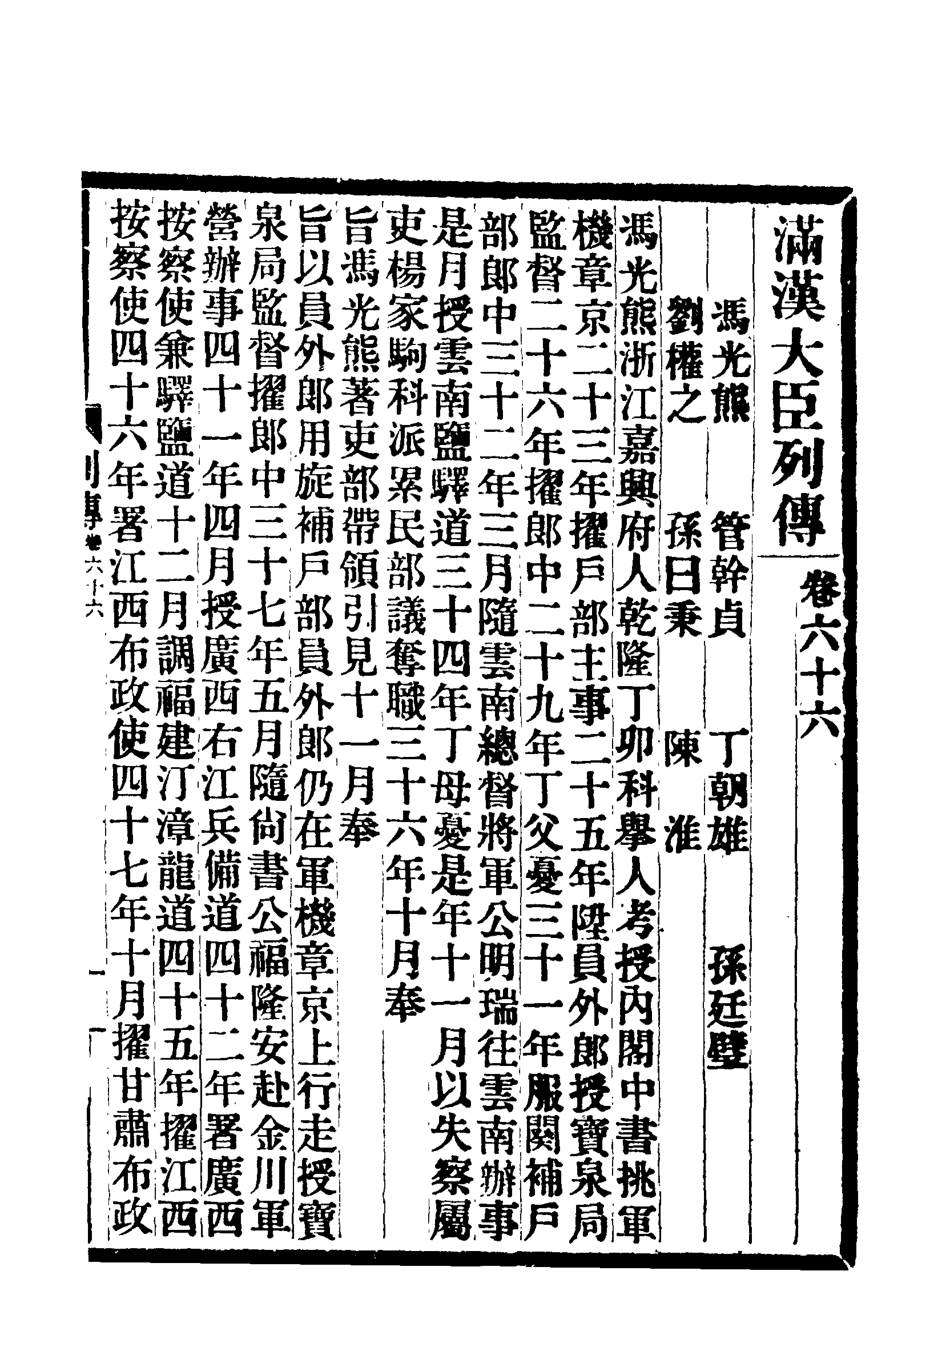 滿漢大臣列傳 卷六十六
馮光熊 管幹貞 丁朝雄 孫廷璧
劉權之 孫曰秉 陳淮
馮光熊浙江嘉興府人乾隆丁卯科舉人考授內閣中書挑軍
機章京二十三年擢戶部主事二十五年陞員外郎授寶泉局
監督二十六年擢郎中二十九年丁父憂三十一年服闋補戶
部郎中三十二年三月隨雲南總督將軍公明瑞往雲南辦事
是月授雲南鹽驛道三十四年丁母憂是年十一月以失察屬
吏楊家駒科派累民部議奪職三十六年十月奉
旨馮光熊著吏部帶領引見十一月奉
旨以員外郎用旋補戶部員外郎仍在軍機章京上行走授寶
泉局監督擢郎中三十七年五月隨尙書公福隆安赴金川軍
營辦事四十一年四月授廣西右江兵備道四十二年署廣西
按察使兼驛鹽道十二月調福建汀漳龍道四十五年擢江西
按察使四十六年署江西布政使四十七年十月擢甘肅布政
列傳卷六十六 一